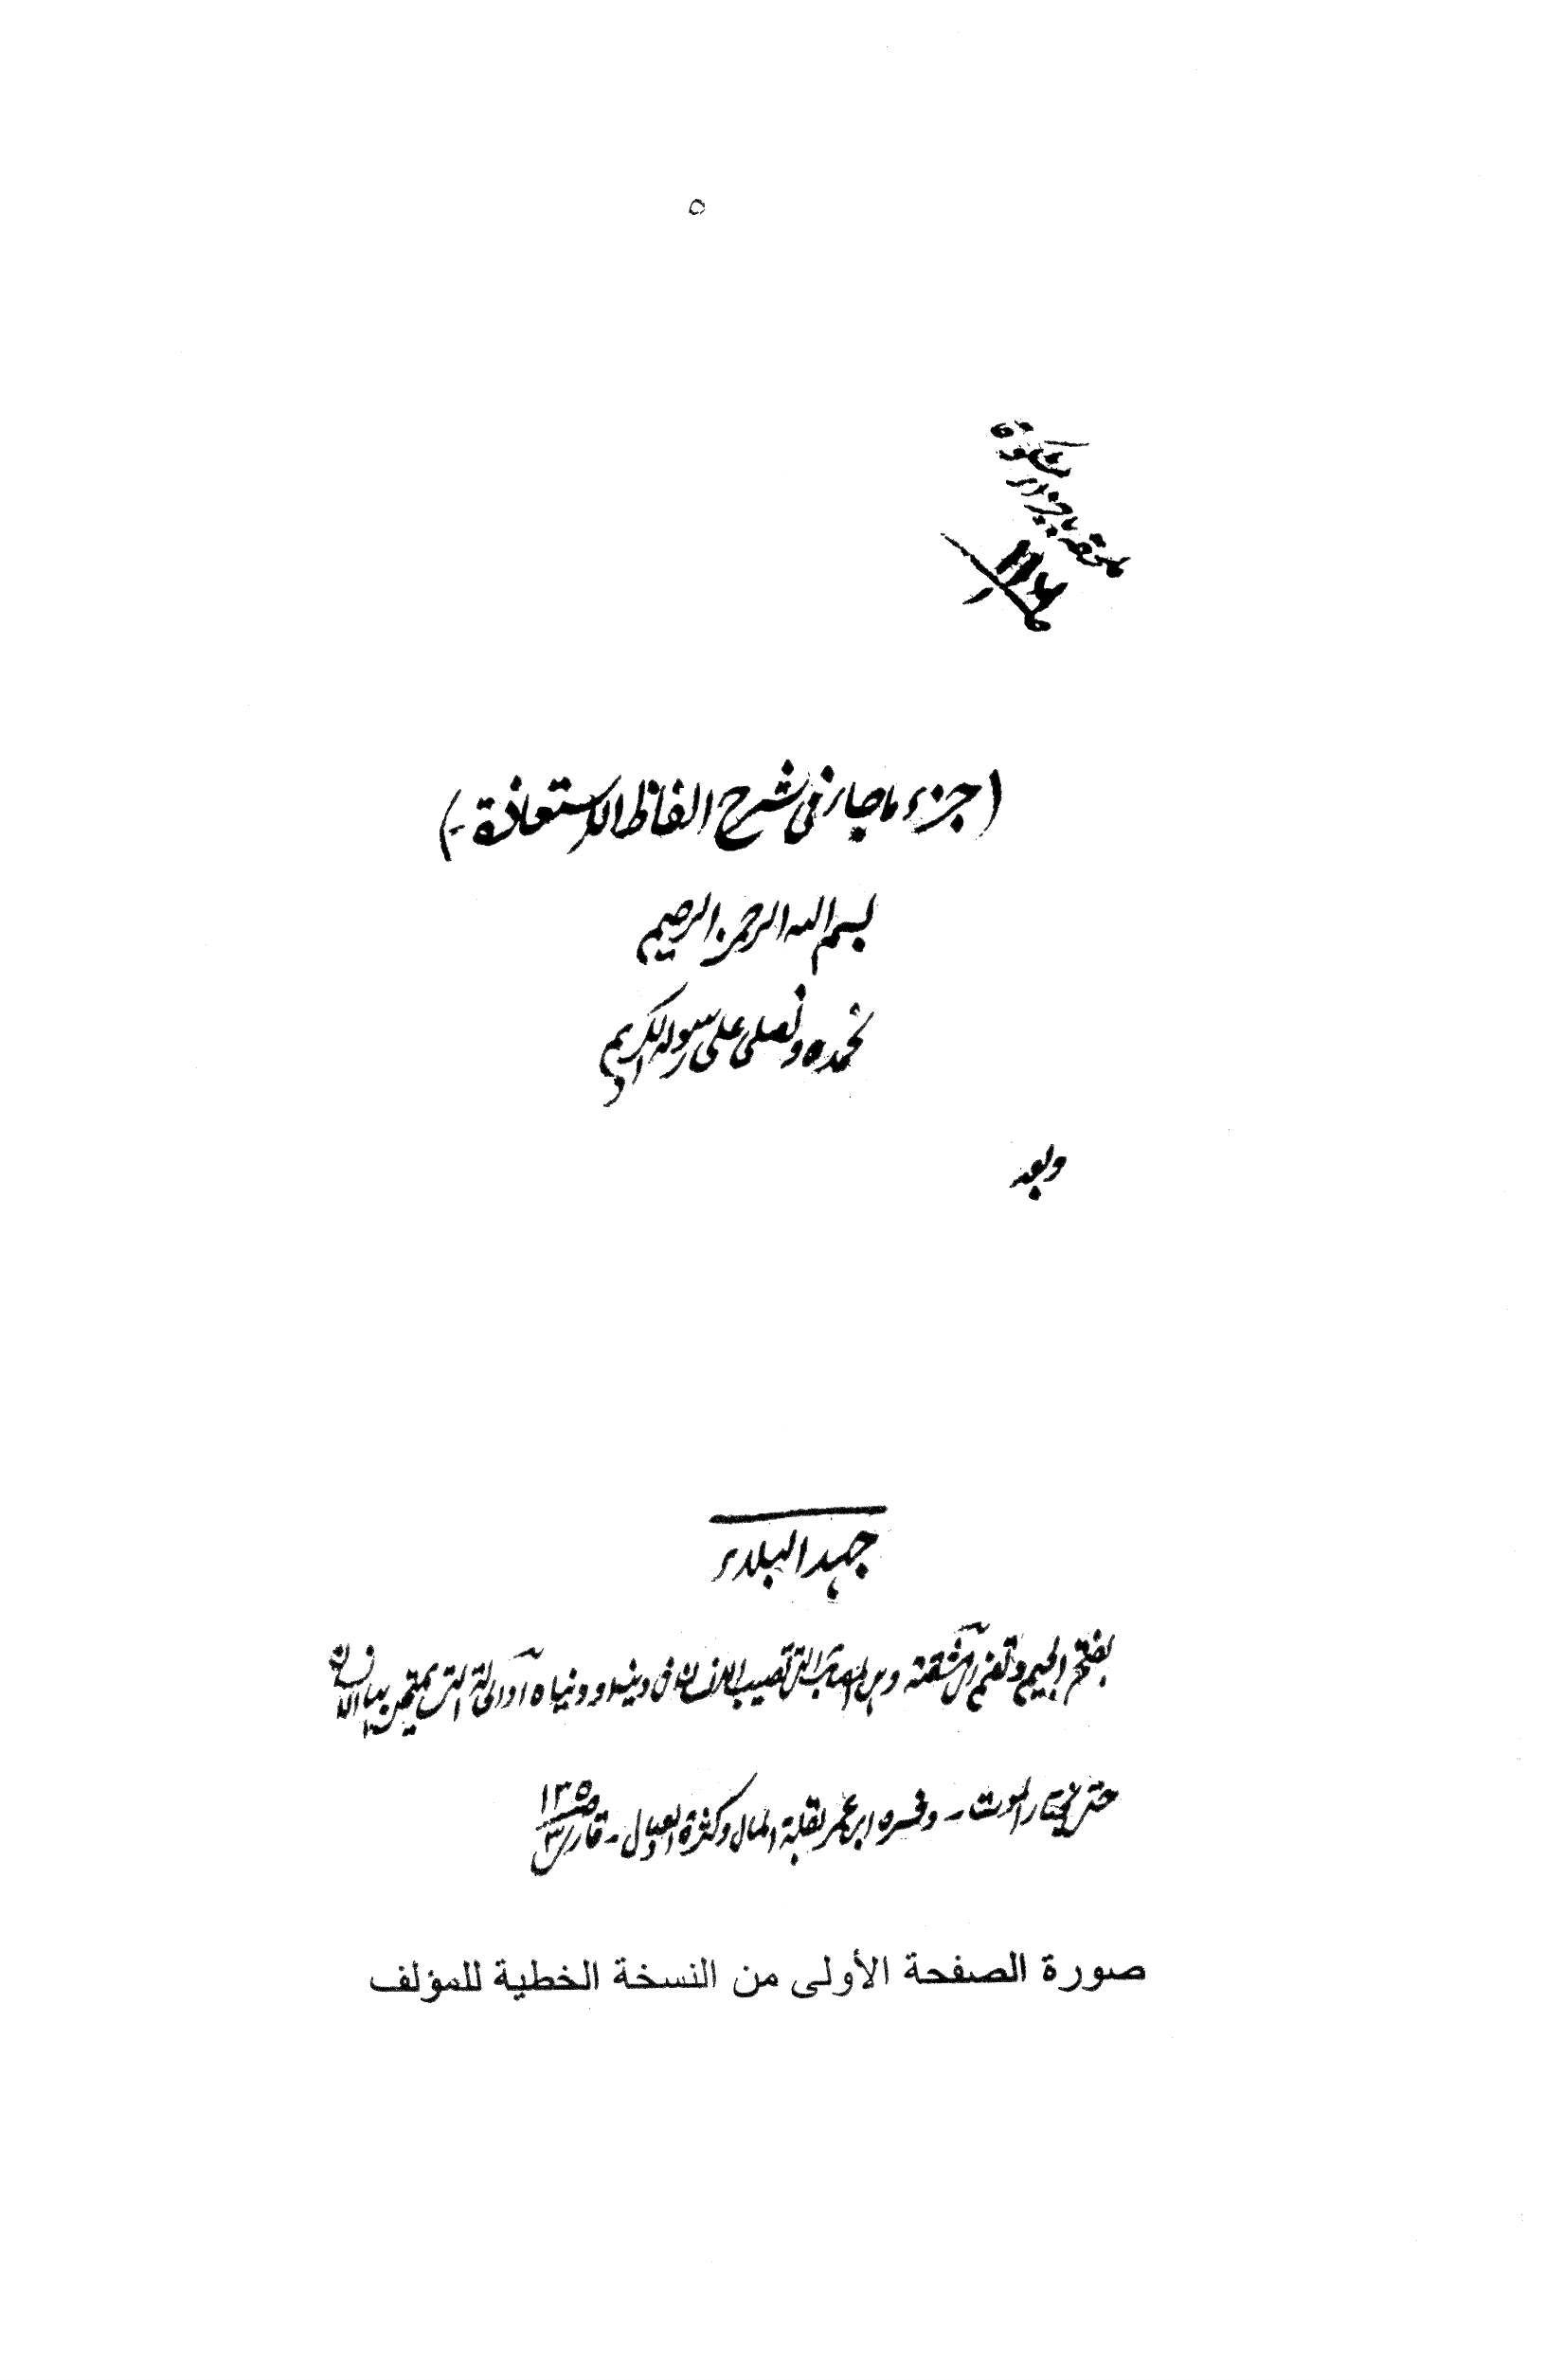 ٥
(جزء ما جاء في شرح الفاظ الاستعاذة -)
بسم الله الرحمن الرحيم
نحمده ونصلى على رسوله الكريم
وبعد
جهد البلاء
بفتح الجيم وتضم المشقة وهى المصائب التى تصيب الانسان فى دينه او دنياه او الحالة التى يمتحن بها الانسان
حتى يختار الموت - وفسره ابن عمر بقلة المال وكثرة العيال - قارى ص١٣٥ ٣
صورة الصفحة الأولى من النسخة الخطية للمؤلف